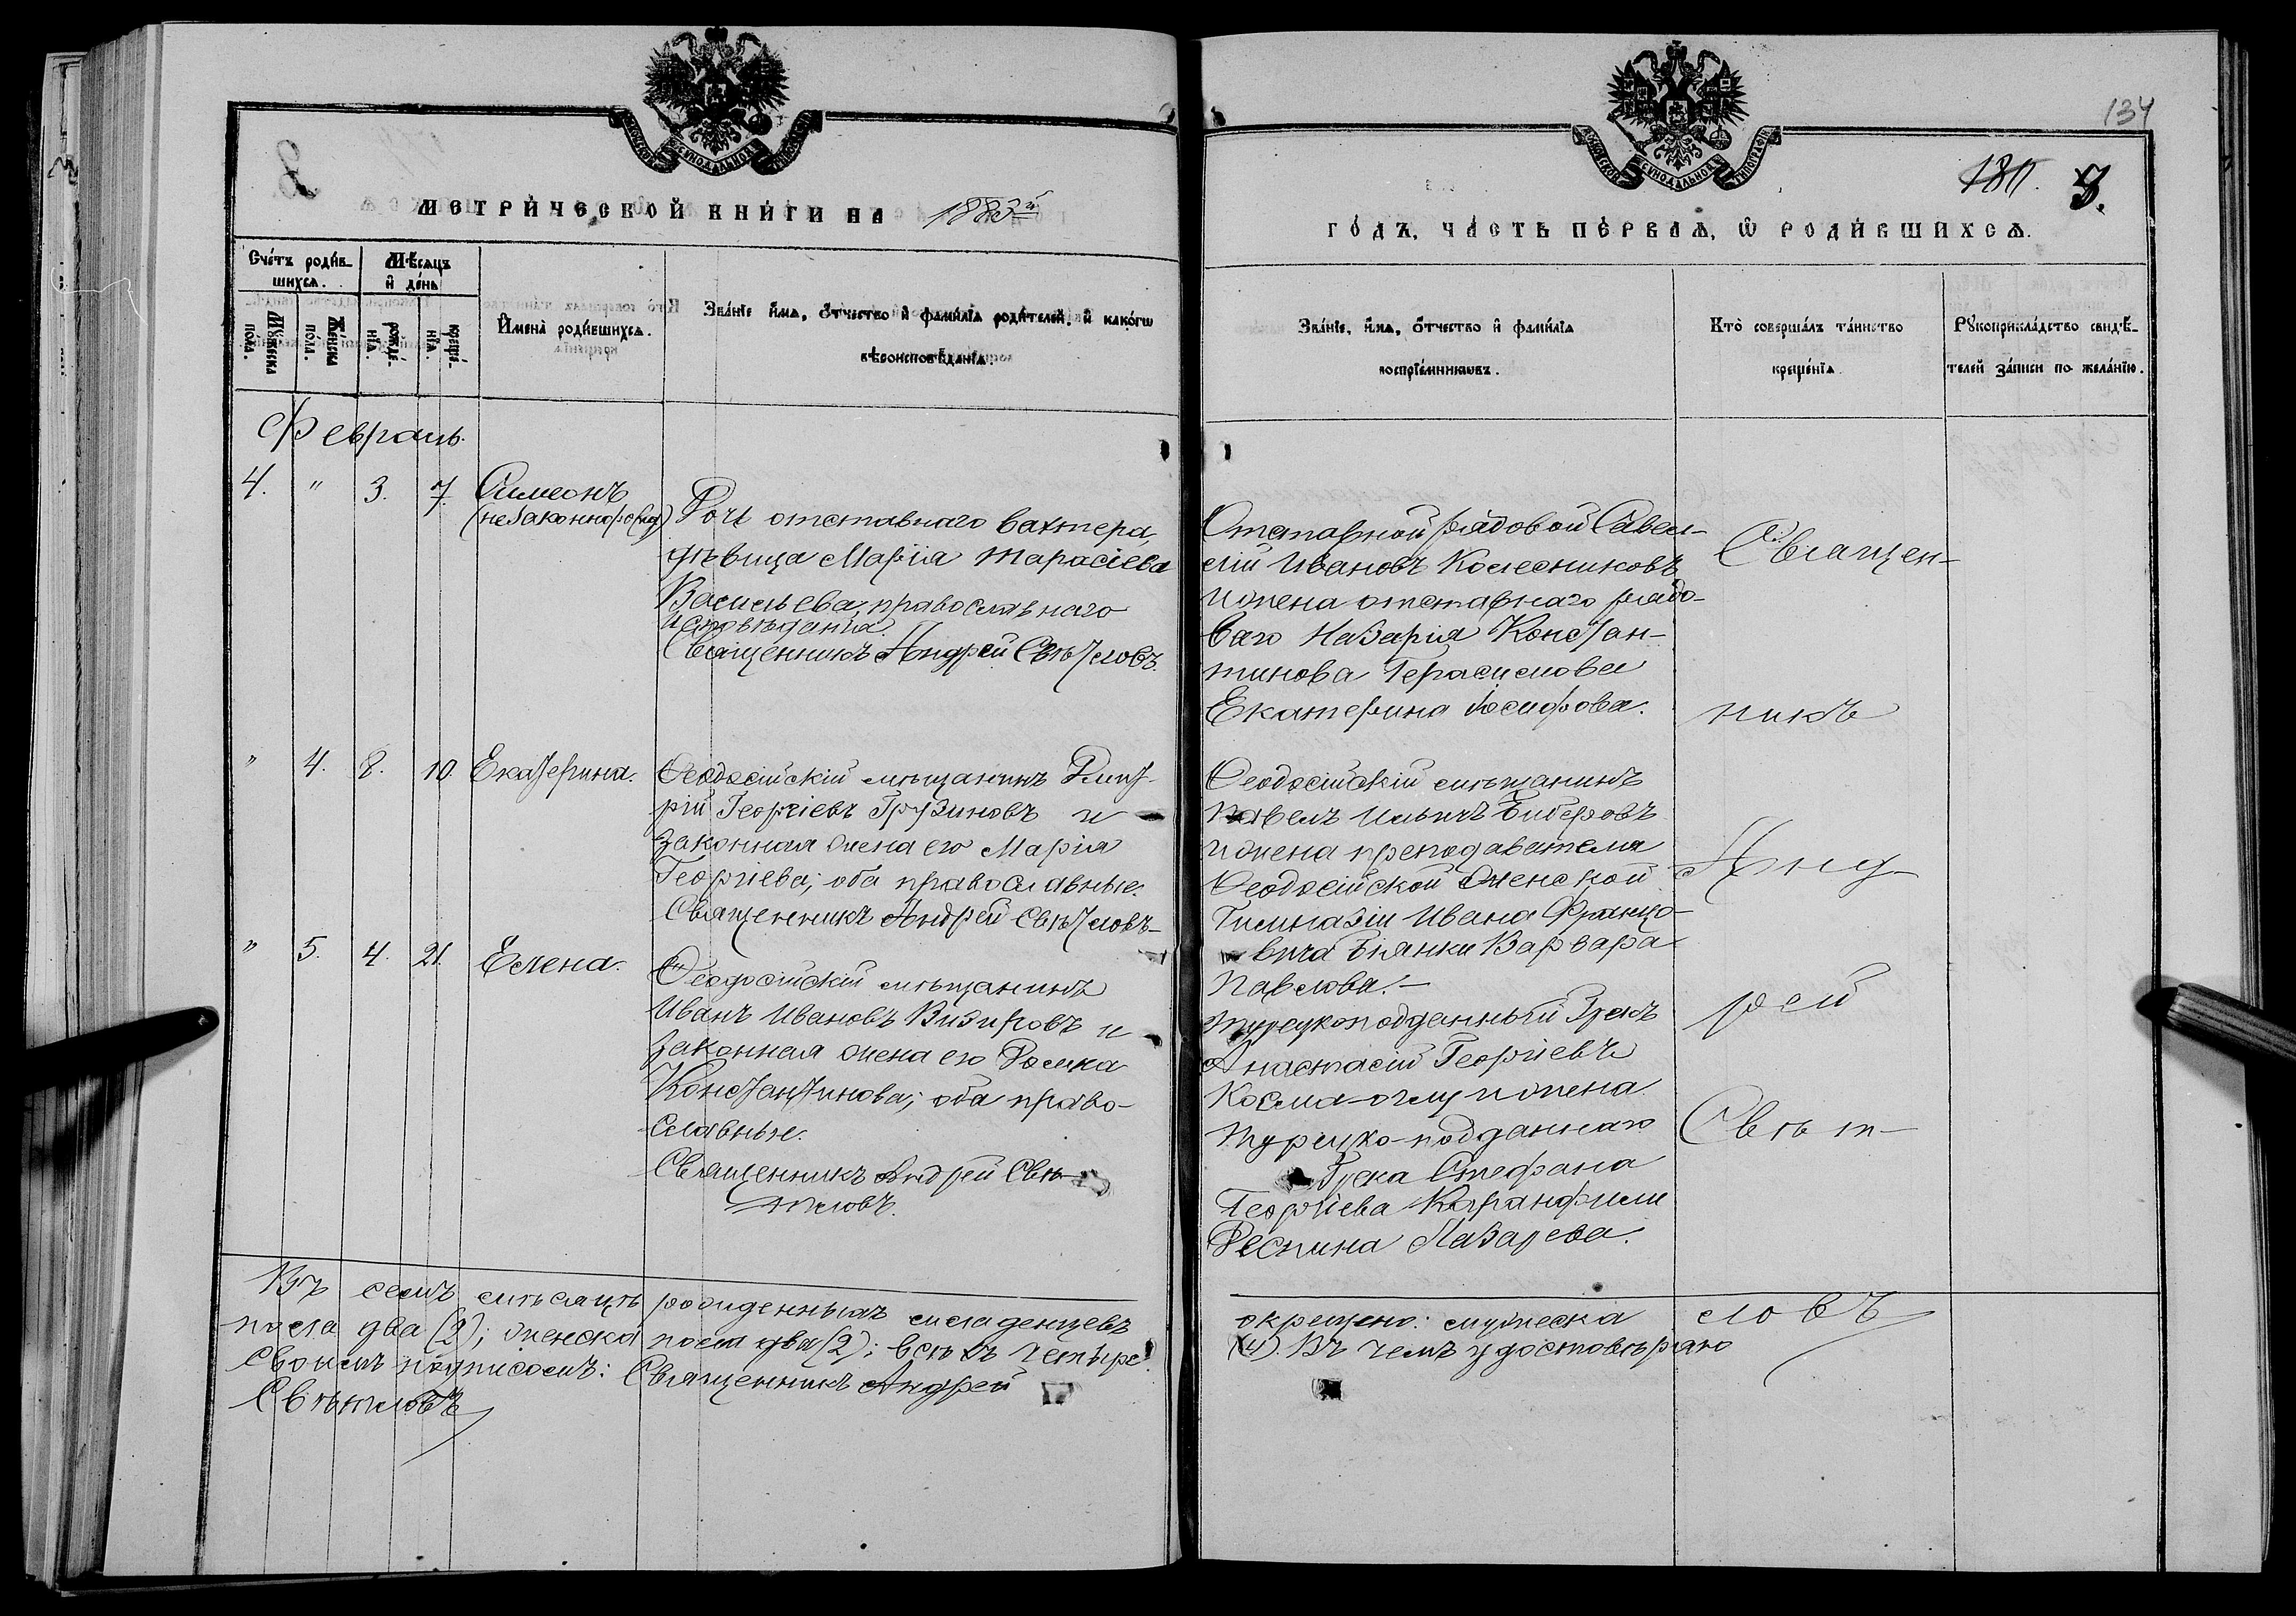 134
8
180. 3.
МОСКОВСКОЙ СѴНОДАЛЬНОЙ ТИПОГРАФІИ
МЕТРИ́ЧЕСКОЙ КНИ́ГИ НА 1883й
ГО́ДЪ, ЧА́СТЬ ПЕ́РВАѦ, Ѡ РОДИ́ВШИХСѦ.
Сче́тъ роди́в-
шихсѧ.
Мѣ́сяцъ
и҆ де́нь
Мꙋ́жеска
по́ла.
Же́нска
по́ла.
рожде́-
нїѧ.
креще́-
нїѧ.
И҆мена̀ роди́вшихсѧ.
Зва́нїе и҆́мѧ, ѻ҆́тчество и҆ фами́лїѧ роди́телей, и҆ како́гѡ
вѣ́роисповѣ́данїѧ.
Зва́нїе, и҆́мѧ, ѻ҆́тчество и҆ фами́лїѧ
воспрїе́мникѡвъ.
Кто̀ соверша́лъ та́инство
креще́нїѧ.
Рꙋкоприкла́дство свидѣ́-
телей за́писи по жела́нїю.
Февраль.
4. " 3. 7. Симеонъ
(незаконнорожд)
Дочь отставнаго вахтера,
дѣвица Марія Тарасіева
Васильева, православнаго
исповѣданія.
Священникъ Андрей Свѣтловъ.
Отставной рядовой Савел-
лій Ивановъ Колесниковъ
и жена отставнаго рядо-
ваго Назарія Констан-
тинова Герасимова
Екатерина Іосифова.
Священ-
никъ
" 4. 8. 10. Екатерина.
Ѳеодосійскій мѣщанинъ Дмит-
рій Георгіевъ Грузиновъ и
законная жена его Марія
Георгіева; оба православные.
Священникъ Андрей Свѣтловъ-
Ѳеодосійскій мѣщанинъ
Павелъ Ильичъ Биберовъ
и жена преподавателя
Ѳеодосійской женской
Гимназіи Ивана Францо-
вича Бянки Варвара
Павлова.-
Анд-
" 5. 4. 21. Елена.
Ѳеодосійскій мѣщанинъ
Иванъ Ивановъ Визировъ и
законная жена его Домна
Константинова; оба право-
славные.
Священникъ Андрей Свѣ-
тловъ.
Турецкоподданный Грекъ
Анастасій Георгіевъ
Косма-оглу и жена
турецко-подданнаго
Грека Стефана
Георгіева Каранфили
Деспина Лазарева.
рей
Свѣт-
Въ семъ мѣсяцѣ рожденныхъ младенцевъ окрещено: мужеска
пола два (2); женска пола два (2); всѣхъ четыре (4). Въ чемъ удостовѣряю
своимъ подписомъ: Священникъ Андрей
Свѣтловъ
ловъ